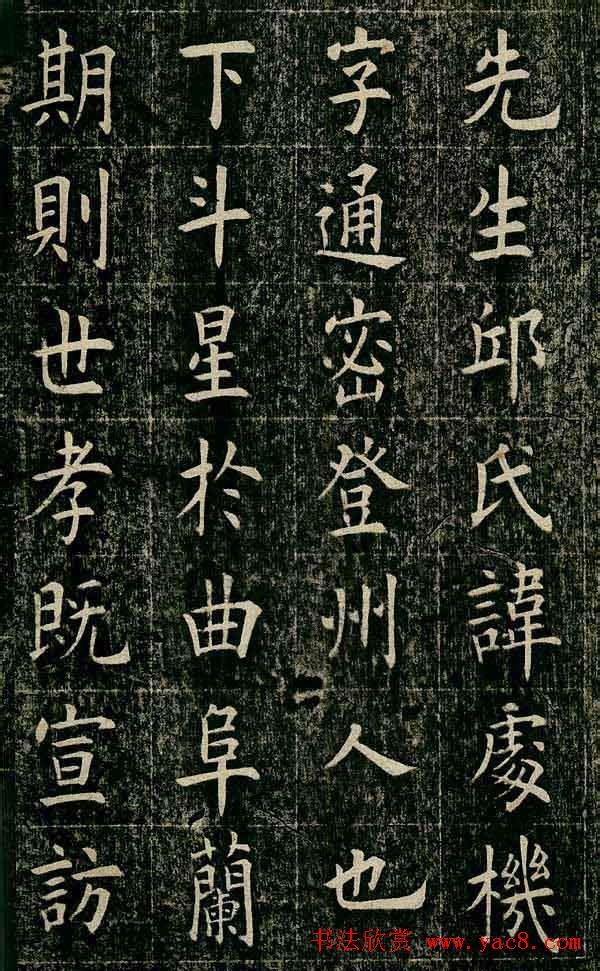 先生邱氏諱處機
字通密登州人也
下斗星於曲阜蘭
期則世孝既宣訪
书法欣赏 www.yac8.com